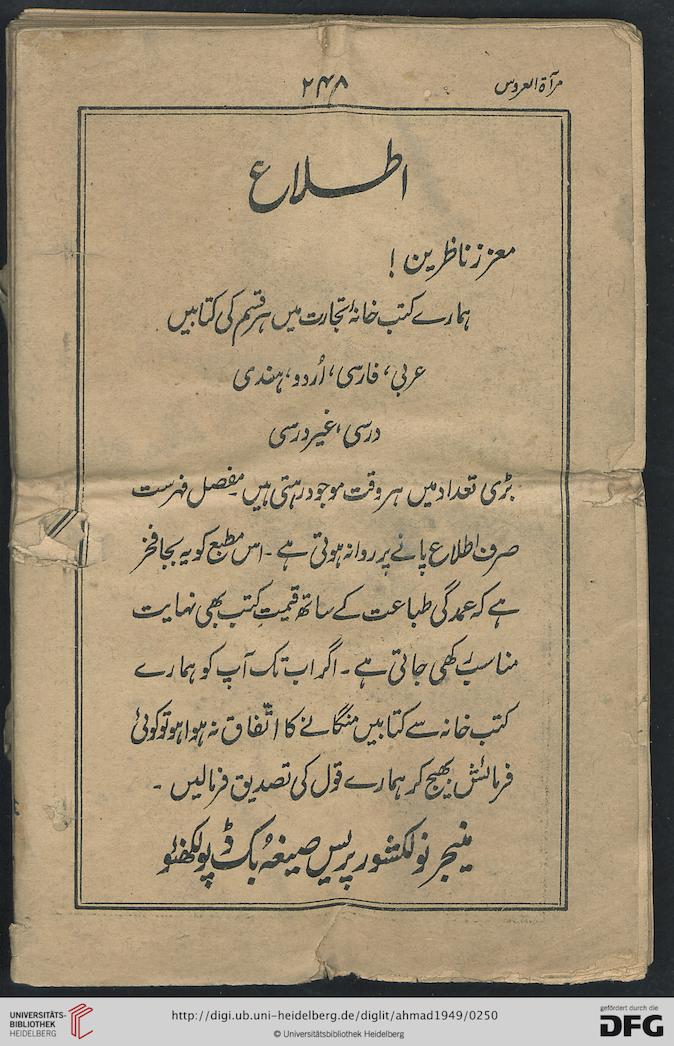 مرآۃ العروس
۲۴۸
اطلاع
معزز ناظرین !
ہمارے کتب خانۂ تجارت میں ہر قسم کی کتابیں
عربی، فارسی، اُردو، ہندی
درسی، غیر درسی
بڑی تعداد میں ہر وقت موجود رہتی ہیں۔ مفصل فہرست
صرف اطلاع پانے پر روانہ ہوتی ہے۔ اس مطبع کو یہ بجا فخر
ہے کہ عمدگی طباعت کے ساتھ قیمتِ کتب بھی نہایت
مناسب رکھی جاتی ہے۔ اگر اب تک آپ کو ہمارے
کتب خانہ سے کتابیں منگانے کا اتّفاق نہ ہوا ہو تو کوئی
فرمائش بھیج کر ہمارے قول کی تصدیق فرمالیں۔
منیجر نولکشور پریس صیغۂ بک ڈپو لکھنؤ
UNIVERSITÄTS-
BIBLIOTHEK
HEIDELBERG
http://digi.ub.uni-heidelberg.de/diglit/ahmad1949/0250
© Universitätsbibliothek Heidelberg
gefördert durch die
DFG